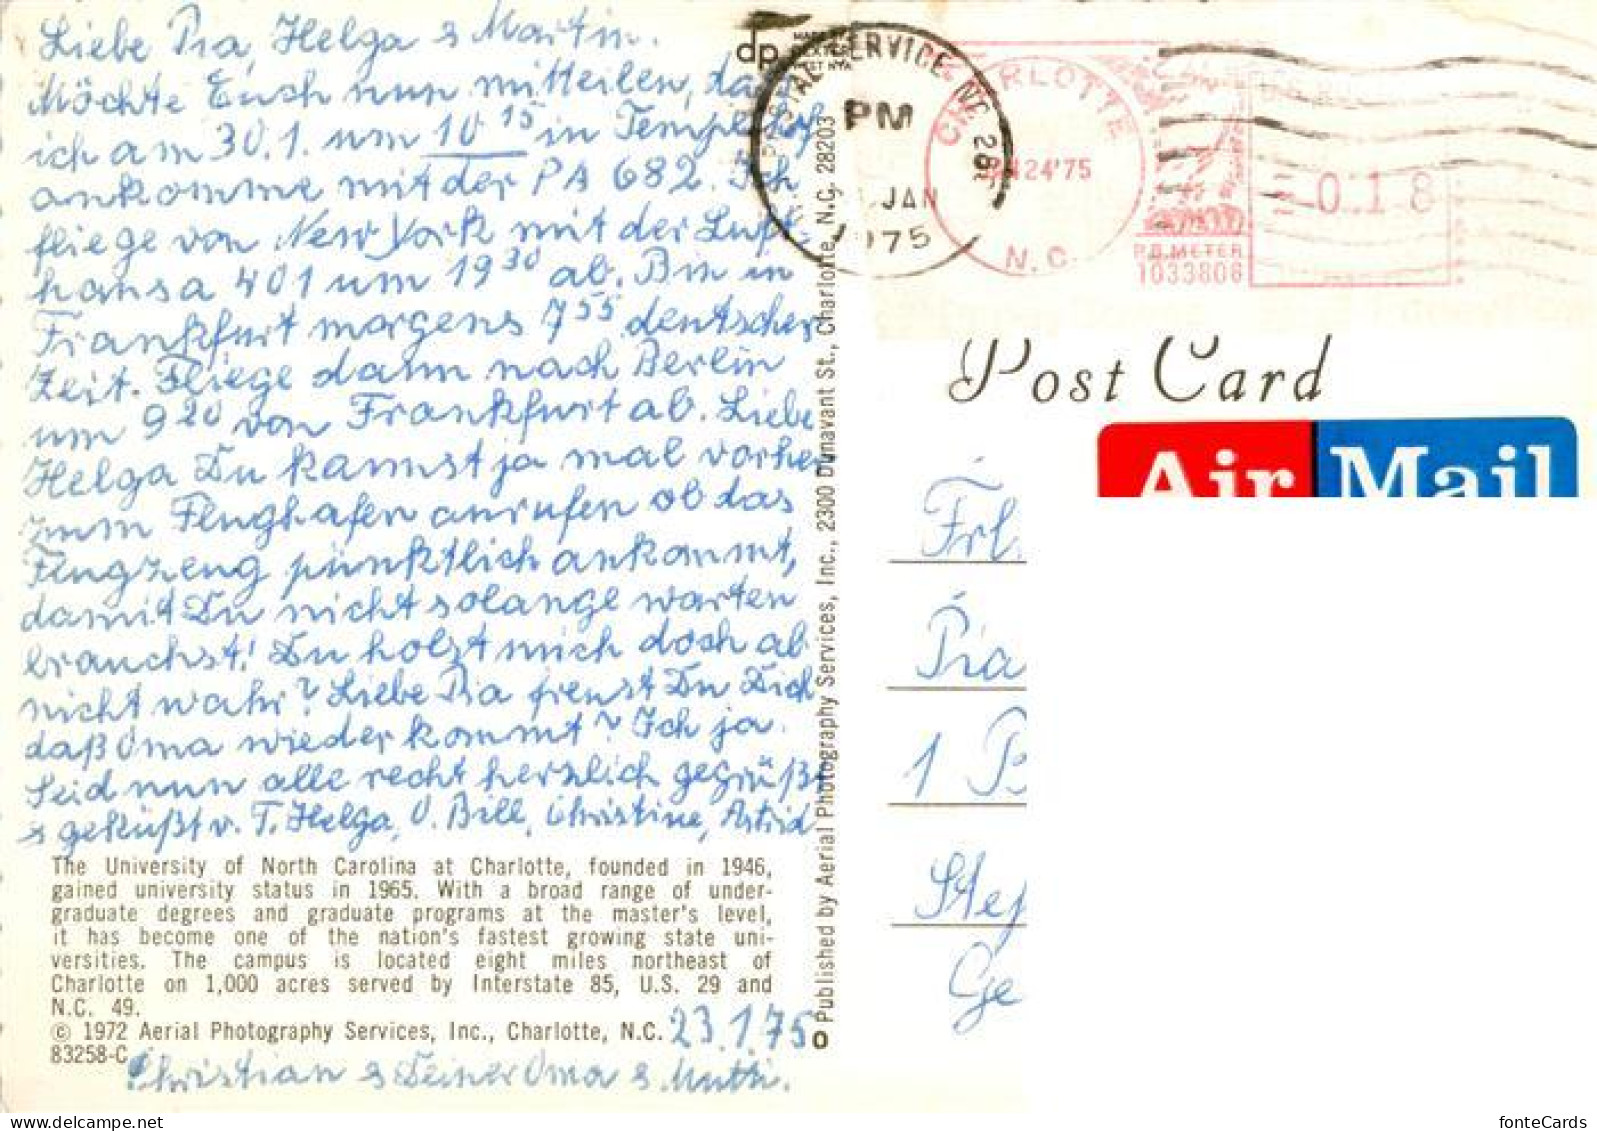 Liebe Pia, Helga & Martin.
Möchte Euch nun mitteilen, daß
ich am 30.1. um 10 15 in Tempelhof
ankomme mit der PA 682. Ich
fliege von New York mit der Luft-
hansa 401 um 19 30 ab. Bin in
Frankfurt morgens 7 55 deutscher
Zeit. Fliege dann nach Berlin
um 9 20 von Frankfurt ab. Liebe
Helga Du kannst ja mal vorher
zum Flughafen anrufen ob das
Flugzeug pünktlich ankommt,
damit Du nicht solange warten
brauchst! Du holst mich doch ab
nicht wahr? Liebe Pia freust Du Dich
daß Oma wieder kommt? Ich ja.
Seid nun alle recht herzlich gegrüßt
& geküßt v. T. Helga, O. Bill, Christine, Astrid
The University of North Carolina at Charlotte, founded in 1946,
gained university status in 1965. With a broad range of under-
graduate degrees and graduate programs at the master's level,
it has become one of the nation's fastest growing state uni-
versities. The campus is located eight miles northeast of
Charlotte on 1,000 acres served by Interstate 85, U.S. 29 and
N.C. 49.
© 1972 Aerial Photography Services, Inc., Charlotte, N.C.
23.1.75
83258-C
Christian & Deine Oma & Mutti.
Published by Aerial Photography Services, Inc., 2300 Dunavant St., Charlotte, N.C. 28203
dp
POSTAL SERVICE NC
PM
JAN
1975
CHARLOTTE
24'75
N.C.
P.B. METER
1033808
018
Post Card
Air Mail
Frl.
Pia
1 B
Step
Ge
fonteCards